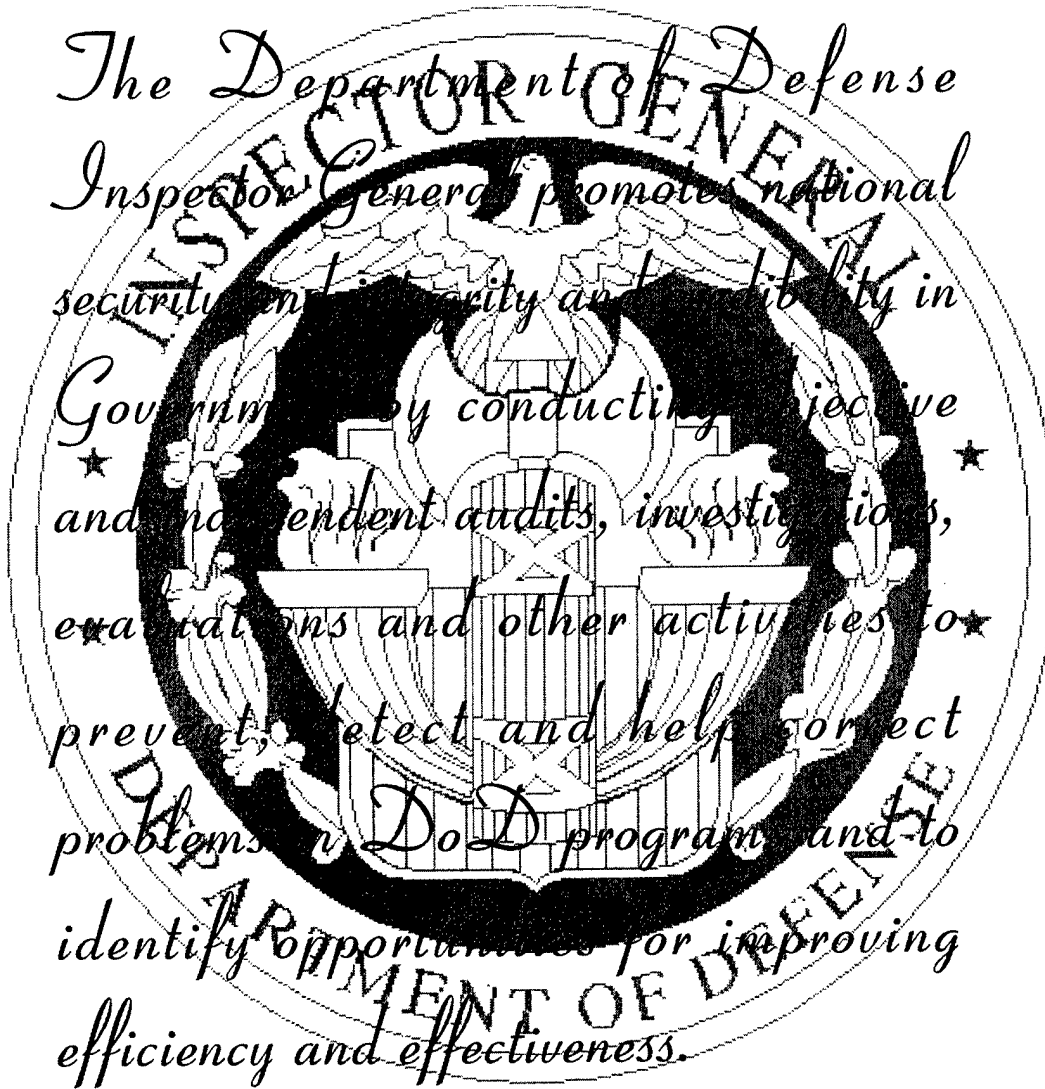 The Department of Defense
Inspector General promotes national
security and integrity and credibility in
Government by conducting objective
and independent audits, investigations,
evaluations and other activities to
prevent, detect and help correct
problems in DoD programs and to
identify opportunities for improving
efficiency and effectiveness.
INSPECTOR GENERAL
DEPARTMENT OF DEFENSE